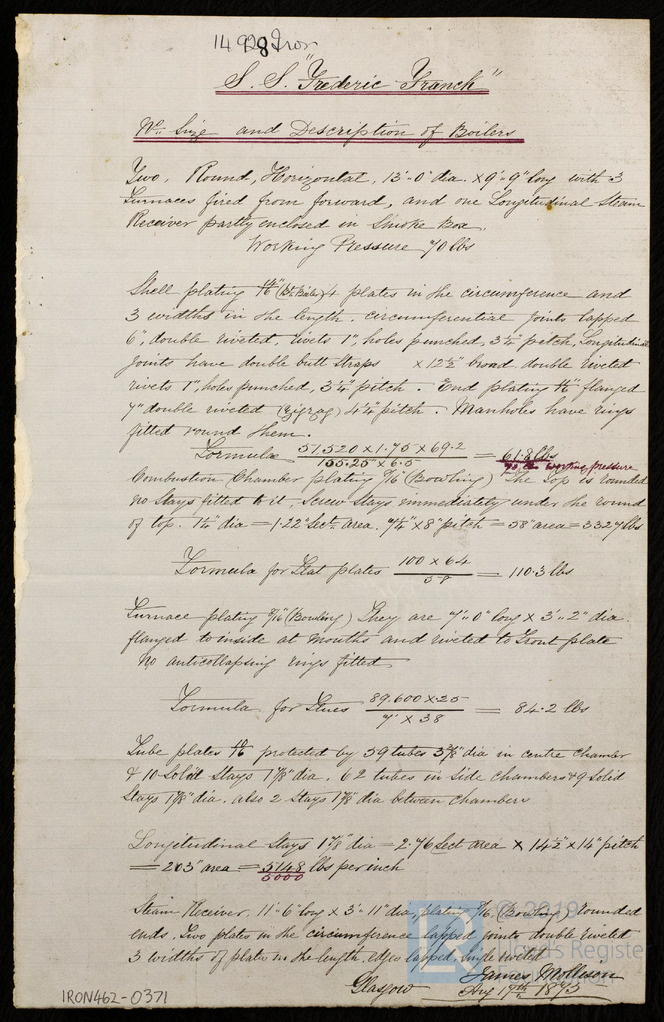 14928 Iron
S. S. "Frederic Franck"
No. Size and Description of Boilers
Two, Round, Horizontal, 13'-0" dia. x 9'-9" long with 3
Furnaces fired from forward, and one Longitudinal Steam
Receiver partly enclosed in Smoke Box.
Working Pressure 70 lbs
Shell plating 14/16" 4 plates in the circumference and
3 widths in the length. circumferential joints lapped
6", double riveted, rivets 1", holes punched, 3¼ pitch, Longitudinal
joints have double butt straps x 12½" broad double riveted
rivets 1", holes punched, 3¼" pitch. End plating flanged
7" double riveted (zigzag) 4¼ pitch. Manholes have rings
fitted round them.
Formula 51,520 x 1.75 x 69.2 / 155.25" x 6.5 = 61.8 lbs
70 lbs working pressure
Combustion Chamber plating 7/16 (Bowling) The Top is rounded
no Stays fitted to it, Screw Stays immediately under the round
of top. 1¼" dia = 1.22" Sect. area, 7¼" x 8" pitch = 58" area = 3327 lbs
Formula for Flat plates 100 x 64 / 58 = 110.3 lbs
Furnace plating 8/16 (Bowling) They are 7'-0" long x 3'-2" dia
flanged to inside at mouths and riveted to Front plate
No anticollapsing rings fitted
Formula for Flues 89.600 x .25 / 7' x 38 = 84.2 lbs
Tube plates protected by 59 tubes 3⅞" dia in centre chamber
& 10 Solid Stays 1⅞" dia. 62 tubes in side chambers & 9 Solid
Stays 1⅞" dia. also 2 Stays 1⅞" dia between chambers
Longitudinal Stays 1⅞" dia = 2.76 Sect area x 14½" x 14" pitch
= 203" area = 5148 lbs per inch
5000
Steam Receiver. 11'-6" long x 3'-11" dia, plating 7/16. (Bowling) rounded
ends. Two plates in the circumference lapped joints double riveted
3 widths of plate in the length, edges lapped single riveted
James Mollison
Glasgow Aug 19th 1873
IRON462-0371
© 2019
Lloyd's Register